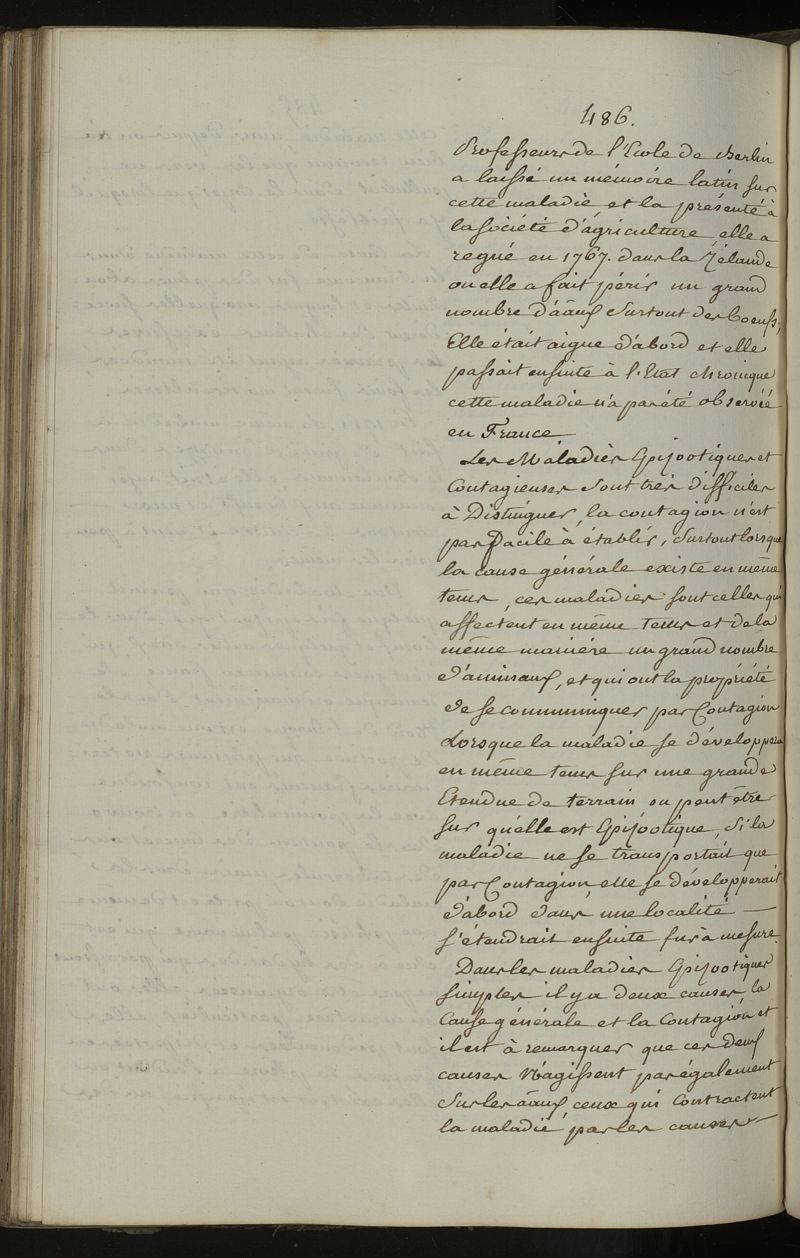 486.
Professeurs de l'Ecole de Berlin
a laissé un mémoire latin sur
cette maladie et la présenté à
la société d'agriculture, elle a
regné en 1767. dans la Zélande
ou elle a fait périr un grand
nombre d'āāux surtout des boeufs;
Elle était aigue d'abord et elle
passait ensuite à l'Etat chronique
cette maladie n'a pas été observée
en France —
Les Maladies Epizootiques et
Contagieuses sont très difficiles
à Distinguer, la contagion n'est
pas facile à établir, surtout lorsque
la cause générale existe en même
tems, ces maladies sont celles qui
affectent en même tems et de la
même maniére un grand nombre
d'aminaux, et qui ont la propriété
de se communiquer par Contagion
Lorsque la maladie se développera
en même tems sur une grande
Etendue de terrain on peut être
sur qu'elle est Epizootique, Si la
maladie ne se transportait que
par Contagion, elle se développerait
d'abord dans une localité —
s'étendrait ensuite fur à mesure.
Dans les maladies Epizootiques
simples il y a deux causes, la
Cause générale et la Contagion et
il est à remarquer que ces deux
causes N'agissent pas également
sur les āāux, ceux qui Contractent
la maladie, par les causes —